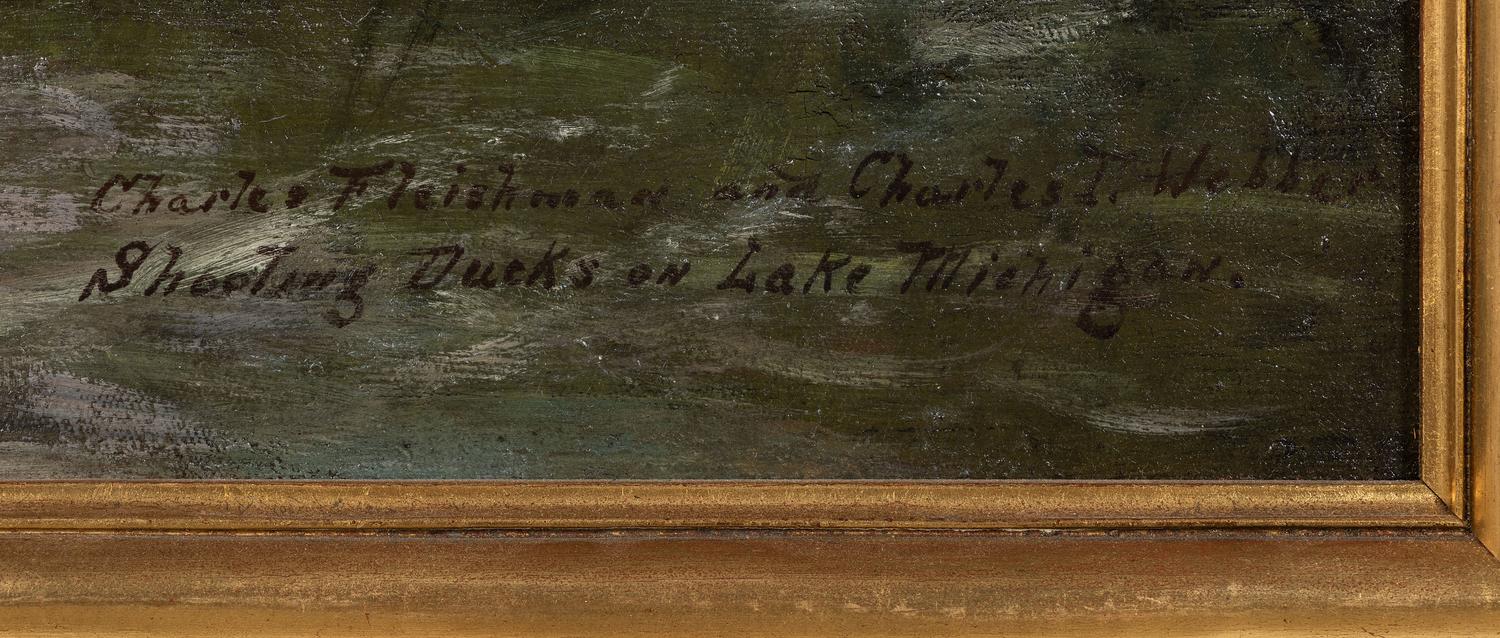 Charles Fleishman and Charles T. Webber
Shooting Ducks on Lake Michigan.